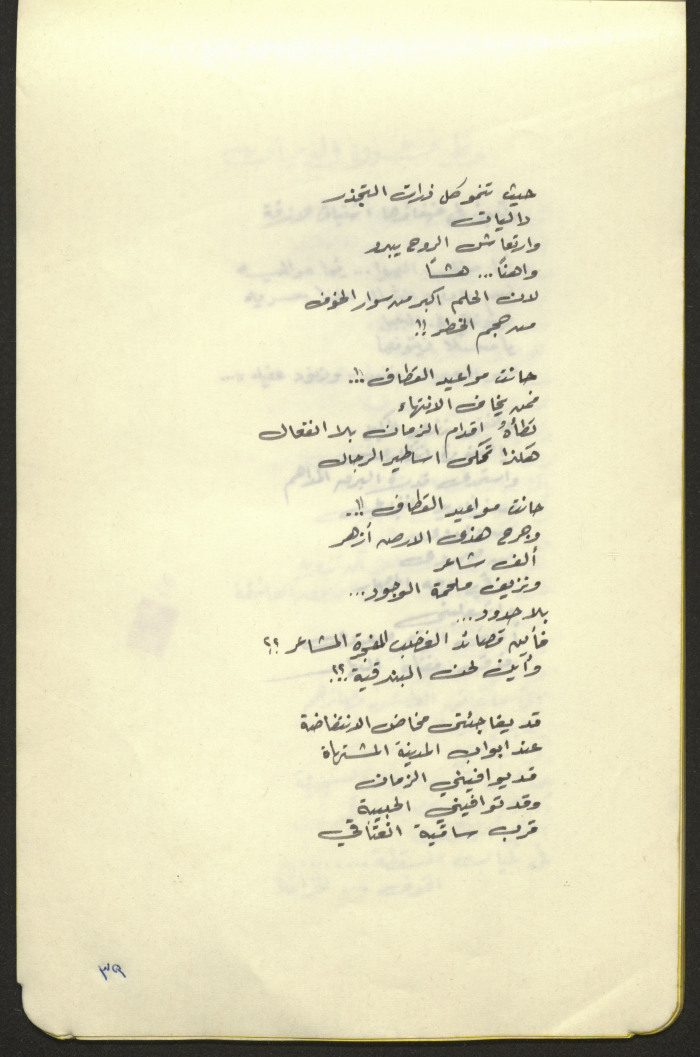 حيث تنمو كل ذرات التجذر
داليات
وارتعاش الروح يبدو
واهناً ... هشاً
لان الحلم اكبر من سوار الخوف
من حجم الخطر !!
حانت مواعيد القطاف !!..
فمن يخاف الانتهاء
تطأهُ اقدام الزمان بلا انفعال
هكذا تحكى اساطير الرجال
حانت مواعيد القطاف !!..
وجرح هذى الارض أزهر
ألف شاعر
ونزيف ملحمة الوجود...
بلا حدود...
فأين قصائد الغضب المفجرة المشاعر ؟؟
وأين لحن البندقية ؟!.
قد يفاجئنى مخاض الانتفاضة
عند ابواب المدينة المشتهاة
قد يوافيني الزمان
وقد توافيني الحبيبة
قرب ساقية انعتاقي
٣٩